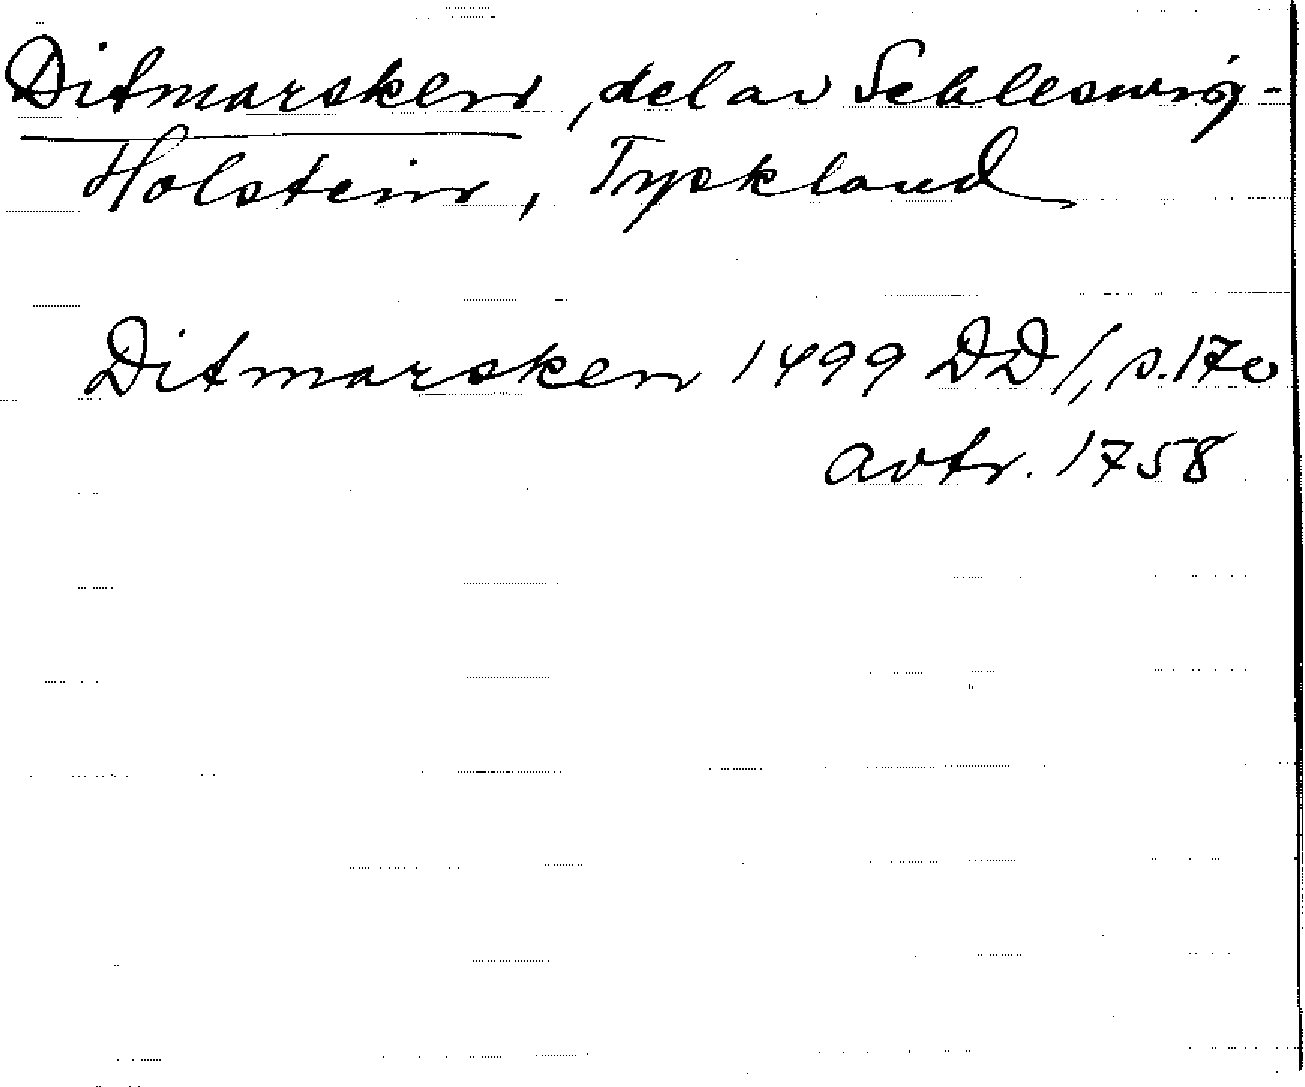 Ditmarsken, del av Schleswig-
Holstein, Tyskland
Ditmarsken 1499 DD 1, s. 170
avtr. 1758